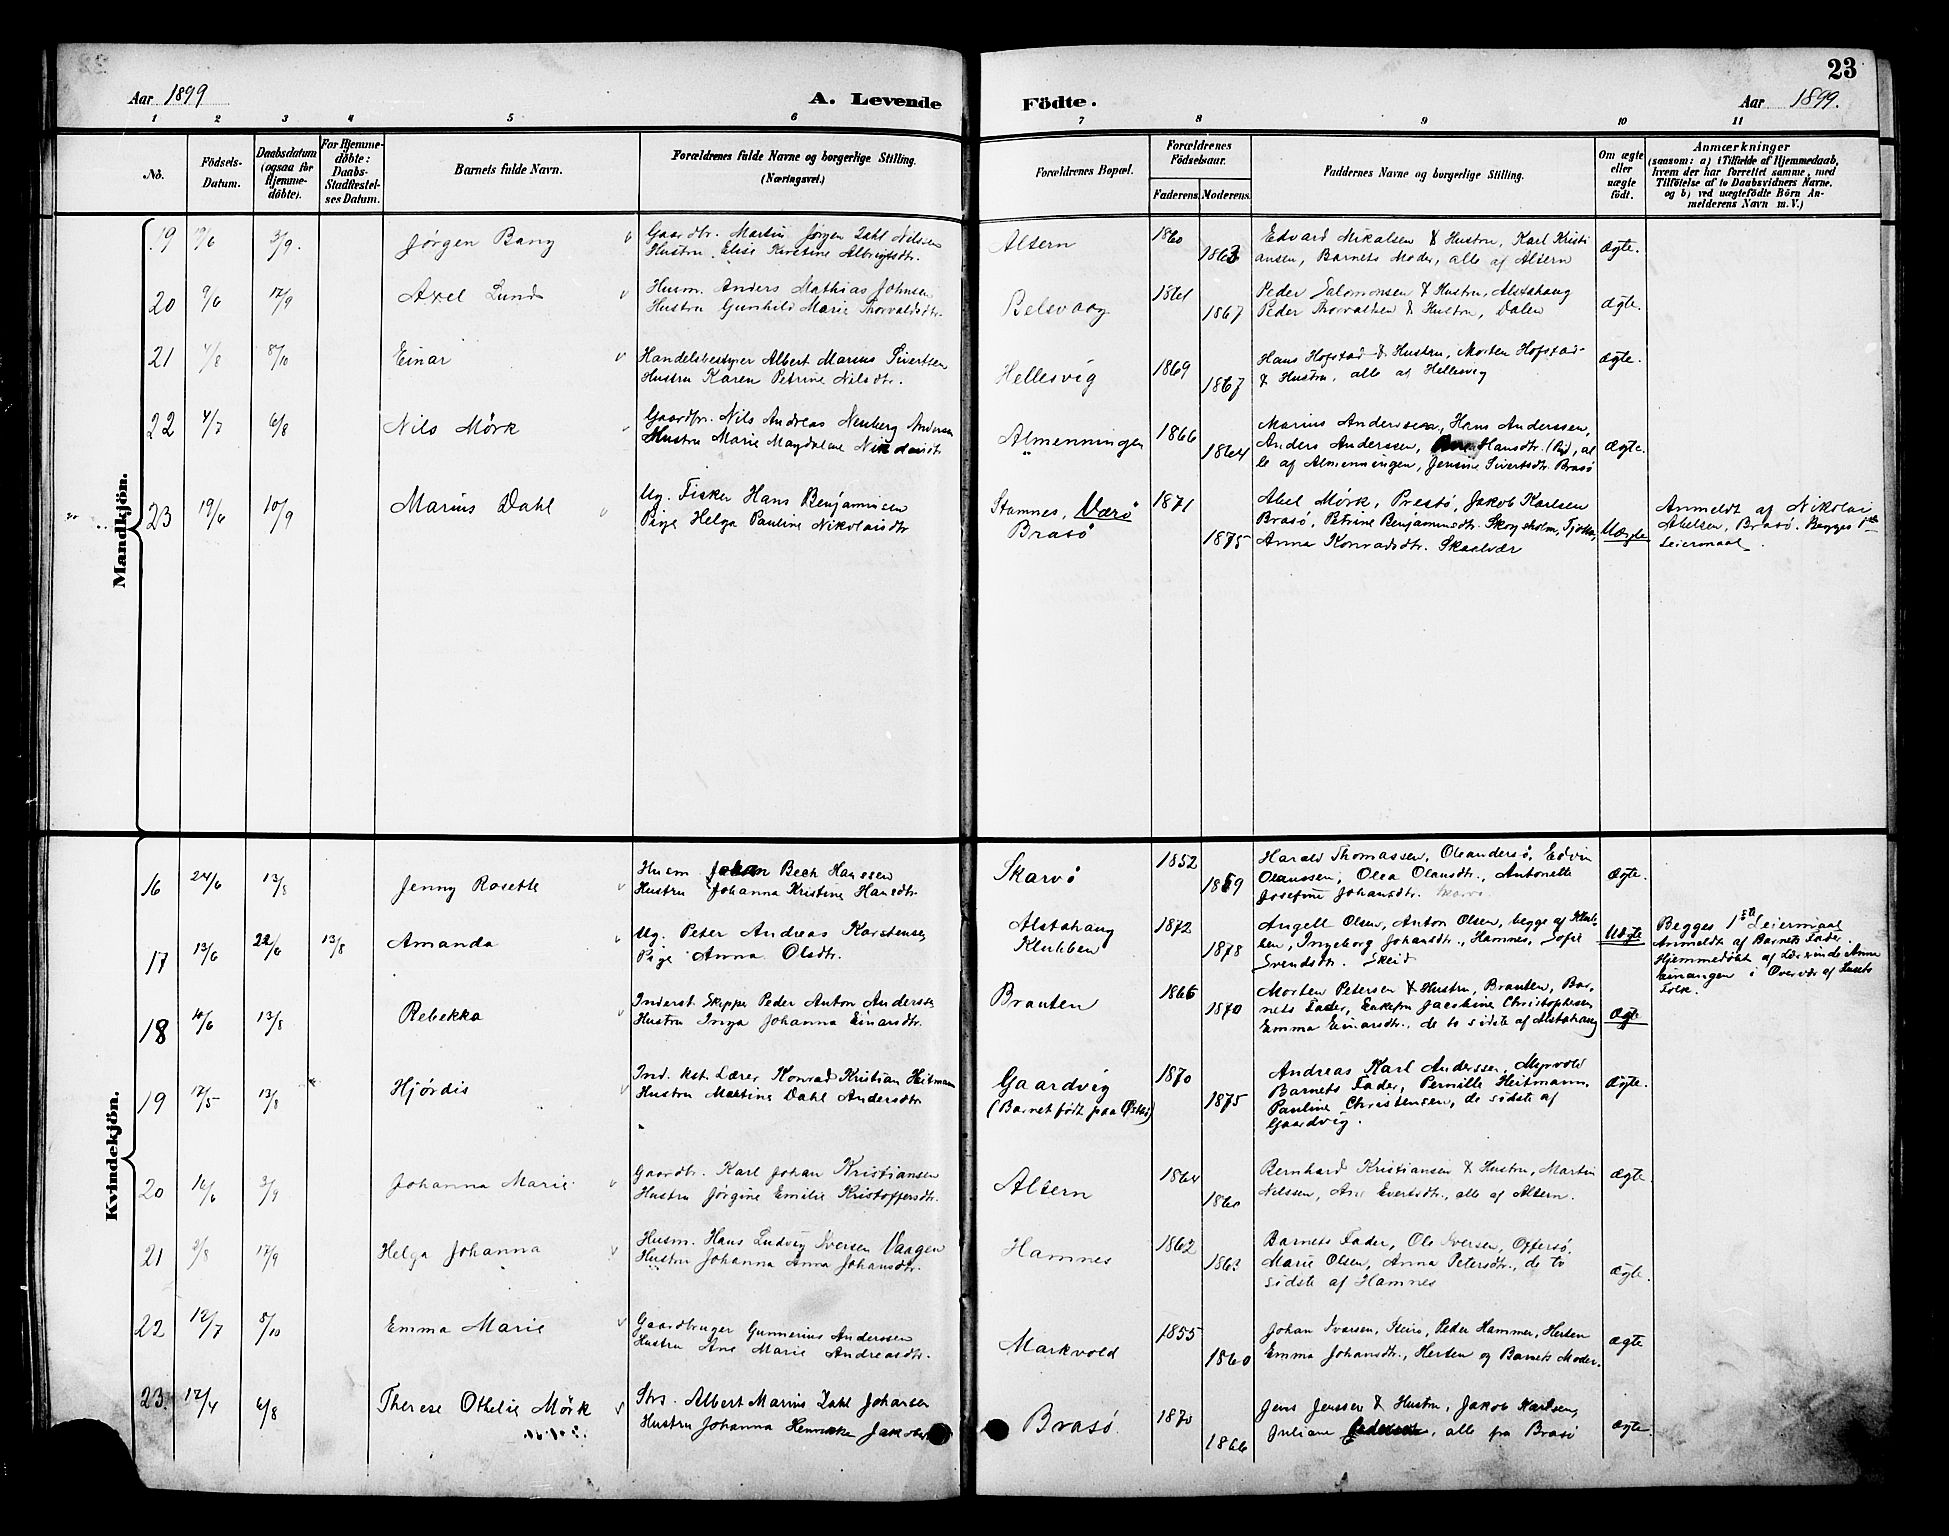 23
Aar 1899 A. Levende Födte. Aar 1899.
1 2 3 4 5 6 7 8 9 10 11
No. Födsels-Datum. Daabsdatum (ogsaa for Hjemmedöbte). For Hjemmedöbte: Daabs-Stadfestelses Datum. Barnets fulde Navn. Forældrenes fulde Navne og borgerlige Stilling. (Næringsvei.) Forældrenes Bopæl. Forældrenes Födselsaar. Faderens Moderens Faddernes Navne og borgerlige Stilling. Om ægte eller uægte födt. Anmærkninger (saasom: a) i Tilfælde af Hjemmedaab, hvem der har forrettet samme, med Tilföielse af to Daabsvidners Navne. og b) ved uægtefödte Börn Anmelderens Navn m. V.)
Mandkjön.
19 19/6 3/9. Jørgen Bang Gaardbr. Martin Jørgen Dahl Nilssen
Hustru Elise Kirstine Albrigtsdtr.
Altern 1860 1863 Edvard Nikalsen & Hustru, Karl Kristi
ansen, Barnets Moder, alle af Altern Ægte.
20 9/6 17/9 Axel Lund Husm. Anders Mathias Johnsen
Hustru Gunhild Marie Thorvaldsdtr.
Belsvaag 1861 1867 Peder Salomonsen & Hustru, Alstahaug
Peder Thorvaldsen & Hustru, Dalen ægte.
21 4/8 8/10 Einar Handelsbestyrer Albert Marius Sivertsen
Hustru Karen Petrine Nilsdtr.
Hellesvig 1869 1867 Hans Hofstad & Hustru, Morten Hofstad
& Hustru, alle af Hellesvig Ægte.
22 4/7 6/8 Nils Mörk Gaardbr. Nils Andreas Neuberg Andersen
Hustru Marie Magdalene Nikolaisdtr
Almenningen 1866 1864 Marius Anderssen, Hans Anderssen,
Anders Anderssen, Hansdtr. (Pi), al
le af Almenningen, Jensine Sivertsdtr. Brasö Ægte.
23 19/6 10/9 Marius Dahl Ug. Fisker Hans Benjaminsen
Pige Helga Pauline Nikolaisdtr
Stamnes, Værö
Brasö 1871 1875 Abel Mörk, Prestö, Jakob Karlsen
Brasö, Petrine Benjaminsdtr. Skogsholm, Tjötta,
Anna Konradsdtr. Skaalvær Uægte
Anmeldt af Nikolai
Abelsen, Brasö. Begges 1ste
Leiermaal.
Kvindekjön.
16 24/6 13/8 Jenny Rosette Husm. Johan Bech Hanssen
Hustru Johanna Kristine Hansdtr
Skarvö 1852 1859 Harald Thomassen, Oleandersö, Edvin
Olaussen, Olea Olausdtr., Antonette
Josefine Johansdtr. Ægte.
17 13/6 22/6 13/8 Amanda Ug. Peter Andreas Karstensen
Pige Anna Olsdtr.
Alstahaug
Klubben 1872 1878 Angell Olsen, Anton Olsen, begge af Klub-
ben, Ingeborg Johansdtr., Hamnes, Sofie
Svendsdtr. Skeid Uægte
Begges 1ste Leiermaal
Anmeldt af Barnets Fader.
Hjemmedöbt af Lærerinde Anne
Einangen i Overvær af Husets
Folk.
18 4/6 13/8 Rebekka Inderst. Skipper Peder Anton Anderssen
Hustru Inga Johanna Einarsdtr.
Brauten 1866 1870 Morten Petersen & Hustru, Brauten, Bar
nets Fader, Enkefru Jacobine Christophersen
Emma Einarsdtr., de to sidste af Alstahaug Ægte
19 17/5 13/8 Hjördis Ind. kst. Lærer Konrad Kristian Heitmann
Hustru Martine Dahl Andersdtr
Gaardvig
(Barnet födt paa ) 1870 1875 Andreas Karl Anderssen, Myrvold
Barnets Fader, Pernille Heitmann.
Pauline Christensen, de sidste af
Gaardvig. Ægte.
20 16/6 3/9 Johanna Marie Gaardbr. Karl Johan Kristiansen
Hustru Jörgine Emilie Kristoffersdtr.
Altern 1864 1860 Bernhard Kristiansen & Hustru, Martin
Nilssen, Ane Evertsdtr., alle af Altern. Ægte.
21 2/8 17/9 Helga Johanna Husm. Hans Ludvig Iversen Vaagen
Hustru Johanna Anna Johansdtr.
Hamnes 1862 1863 Barnets Fader, Ole Iversen, Offersö,
Marie Olsen, Anna Petersdtr., de to
sidste af Hamnes Ægte.
22 12/7 8/10 Emma Marie Gaardbruger Gunnerius Anderssen
Hustru Ane Marie Andreasdtr.
Markvold 1855 1860 Johan Iversen, Peder Hammer, Herten
Emma Johansdtr., Herten og Barnets Moder. Ægte
23. 12/4 6/8 Therese Othelie Mörk Strs. Albert Marius Dahl Johansen
Hustru Johanna Henrikke
Brasö. 1870 1866 Jens Jenssen & Hustru, Jakob Karlsen,
Juliane , alle fra Brasö Ægte.